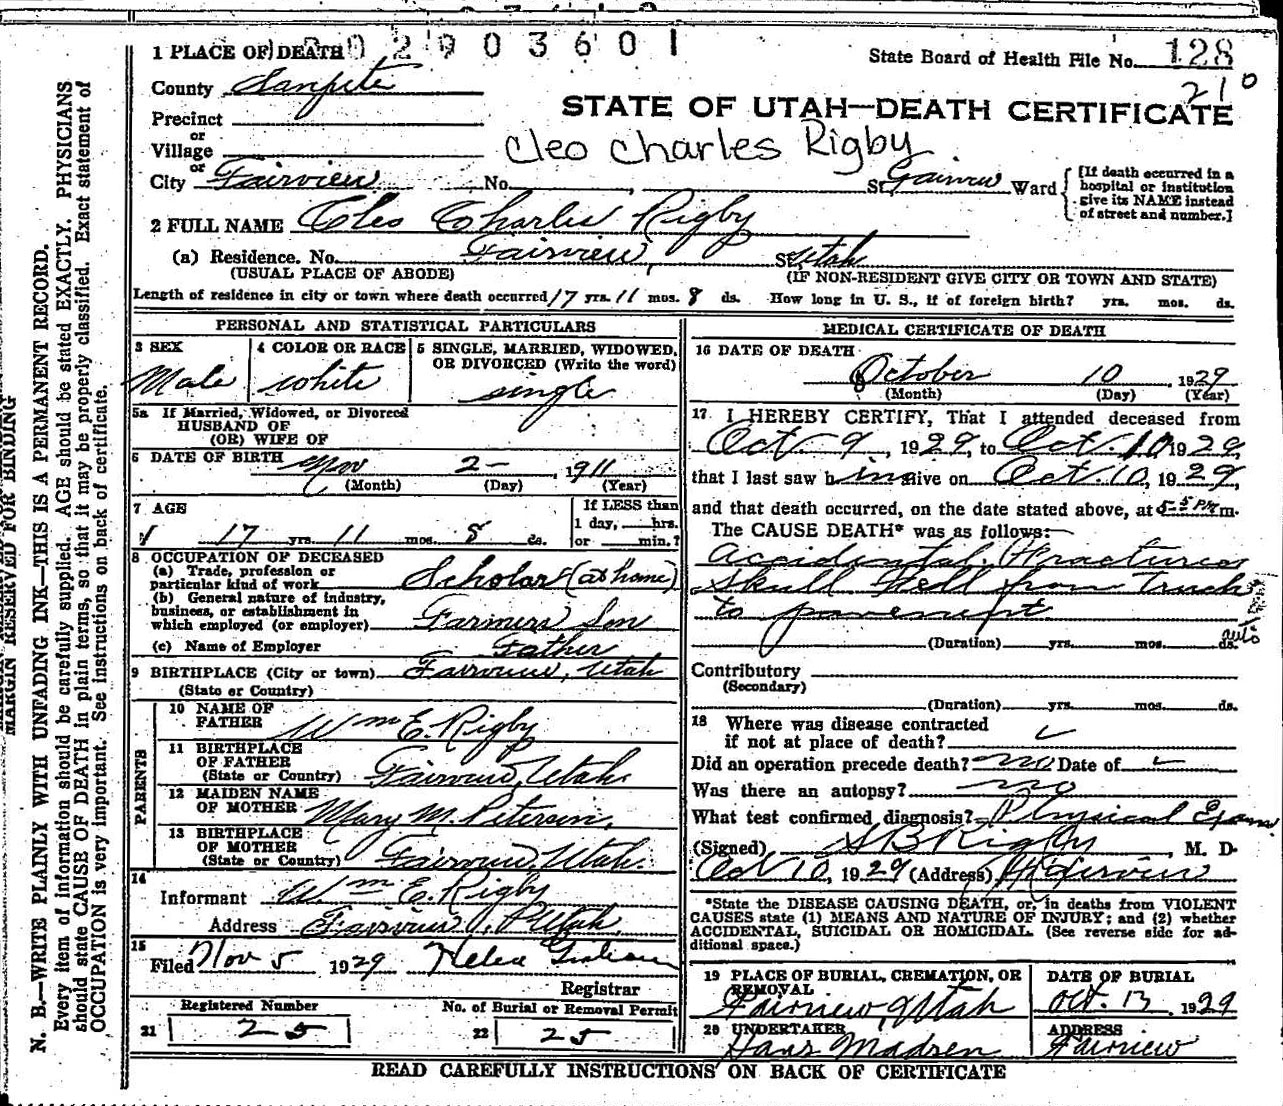 1 PLACE OF DEATH 2903601
State Board of Health File No. 128
210
County Sanpete
STATE OF UTAH—DEATH CERTIFICATE
Precinct
or
Village
Cleo Charles Rigby
or
City Fairview No. St. Fairview Ward
[If death occurred in a hospital or institution give its NAME instead of street and number.]
2 FULL NAME Cleo Charles Rigby
(a) Residence. No. Fairview, St. Utah
(USUAL PLACE OF ABODE) (IF NON-RESIDENT GIVE CITY OR TOWN AND STATE)
Length of residence in city or town where death occurred 17 yrs. 11 mos. 8 ds. How long in U. S., if of foreign birth? yrs. mos. ds.
PERSONAL AND STATISTICAL PARTICULARS
3 SEX Male
4 COLOR OR RACE white
5 SINGLE, MARRIED, WIDOWED, OR DIVORCED (Write the word) single
5a If Married, Widowed, or Divorced
HUSBAND OF
(OR) WIFE OF
6 DATE OF BIRTH Nov 2- 1911
(Month) (Day) (Year)
7 AGE 17 yrs. 11 mos. 8 ds.
If LESS than 1 day, hrs. or min.?
8 OCCUPATION OF DECEASED
(a) Trade, profession or particular kind of work Scholar (at home)
(b) General nature of industry, business, or establishment in which employed (or employer) Farmers Son
(c) Name of Employer Father
9 BIRTHPLACE (City or town) Fairview, Utah
(State or Country)
PARENTS
10 NAME OF FATHER Wm E. Rigby
11 BIRTHPLACE OF FATHER (State or Country) Fairview, Utah
12 MAIDEN NAME OF MOTHER Mary M. Petersen,
13 BIRTHPLACE OF MOTHER (State or Country) Fairview, Utah.
14
Informant Wm E. Rigby
Address Fairview, Utah,
15
Filed Nov 5 1929 Helen
Registrar
Registered Number
21 25
No. of Burial or Removal Permit
22 25
MEDICAL CERTIFICATE OF DEATH
16 DATE OF DEATH
October 10, 1929
(Month) (Day) (Year)
17 I HEREBY CERTIFY, That I attended deceased from
Oct. 9, 1929, to Oct. 10 1929,
that I last saw him alive on Oct. 10, 1929,
and that death occurred, on the date stated above, at m.
The CAUSE DEATH* was as follows:
Accidental. Fractured
Skull Fell from Truck
to pavement
auto
(Duration) yrs. mos. ds.
Contributory
(Secondary)
(Duration) yrs. mos. ds.
18 Where was disease contracted
if not at place of death?
Did an operation precede death? no Date of
Was there an autopsy? no
What test confirmed diagnosis? Physical Exam
(Signed) S B Rigby, M. D.
Oct 10, 1929 (Address) Fairview
*State the DISEASE CAUSING DEATH, or, in deaths from VIOLENT
CAUSES state (1) MEANS AND NATURE OF INJURY; and (2) whether
ACCIDENTAL, SUICIDAL OR HOMICIDAL. (See reverse side for ad-
ditional space.)
19 PLACE OF BURIAL, CREMATION, OR REMOVAL
Fairview, Utah
DATE OF BURIAL
Oct. 13, 1929
20 UNDERTAKER
Hans Madsen
ADDRESS
Fairview
READ CAREFULLY INSTRUCTIONS ON BACK OF CERTIFICATE
MARGIN RESERVED FOR BINDING
N. B.—WRITE PLAINLY WITH UNFADING INK—THIS IS A PERMANENT RECORD.
Every item of information should be carefully supplied. AGE should be stated EXACTLY. PHYSICIANS
should state CAUSE OF DEATH in plain terms, so that it may be properly classified. Exact statement of
OCCUPATION is very important. See instructions on back of certificate.